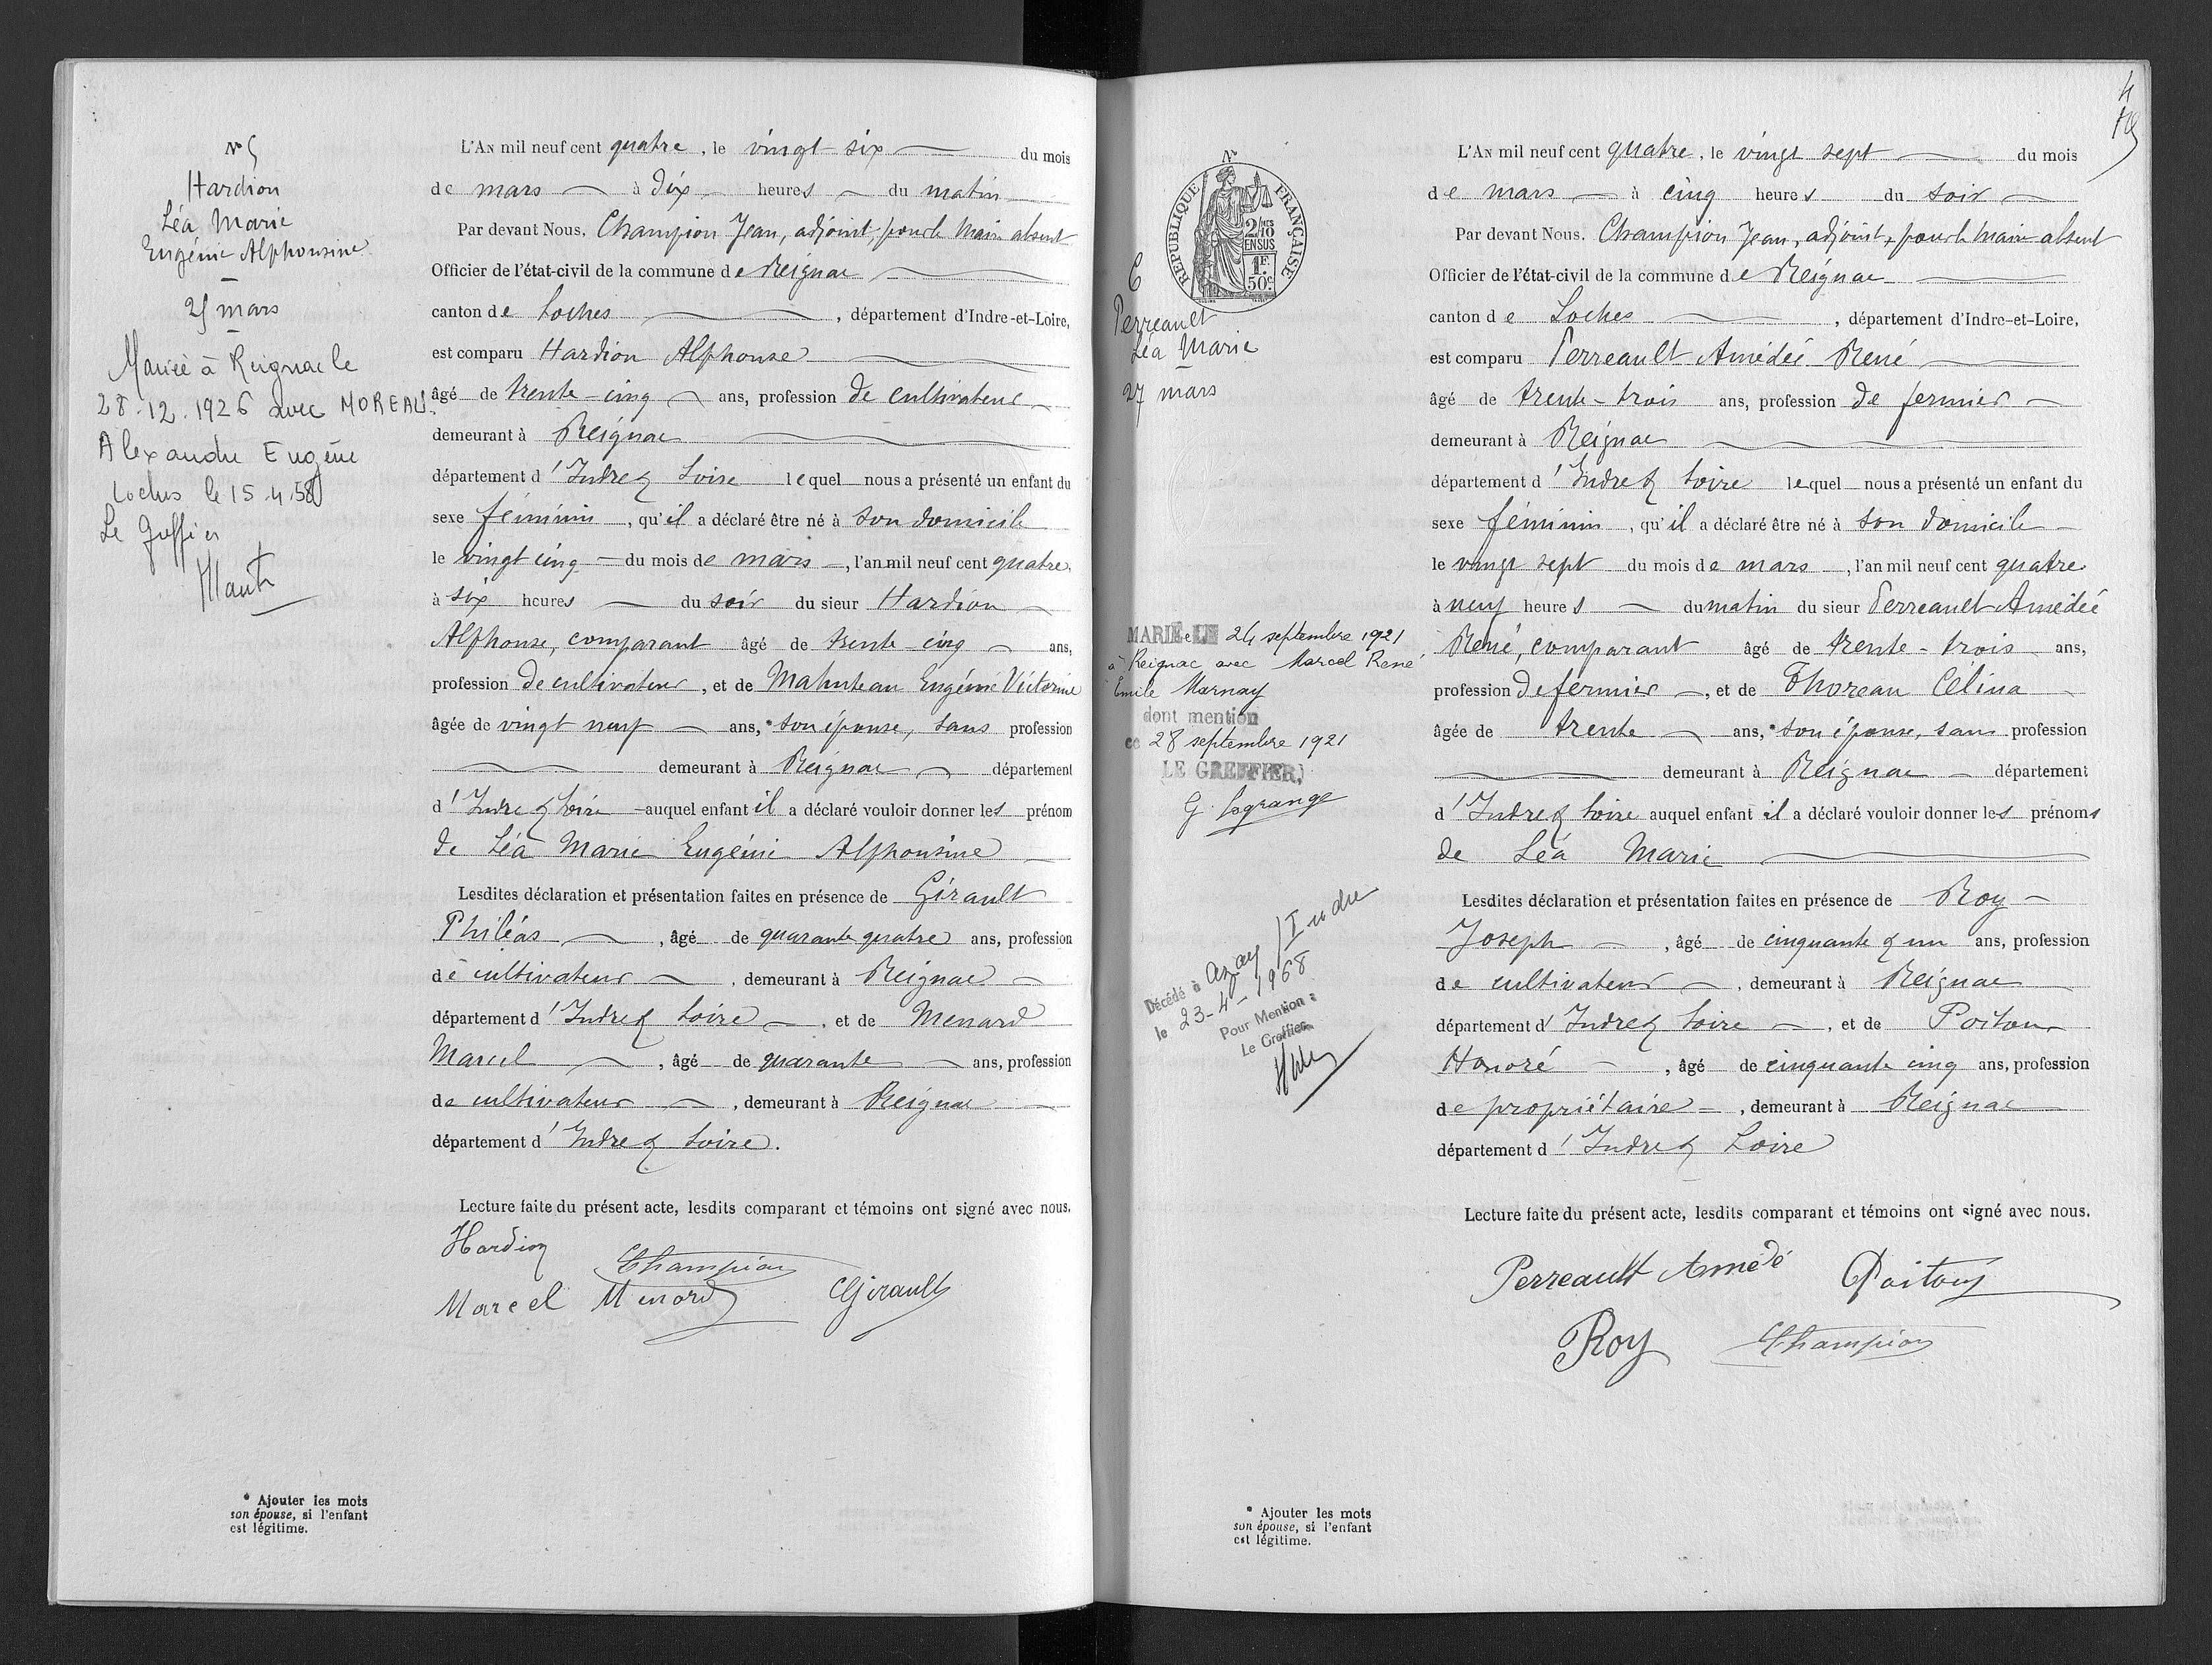 N° 5
Hardion
Léa Marie
Eugénie Alphonsine
25 mars
Mariée à Reignac le
28.12.1926 avec MOREAU
Alexandre Eugène
Loches le 15.4.58
Le Greffier
L'AN mil neuf cent quatre, le vingt six du mois
de mars à dix heures du matin
Par devant Nous, Champion Jean, adjoint, pour le Maire absent
Officier de l'état-civil de la commune de Reignac
canton de Loches, département d'Indre-et-Loire,
est comparu Hardion Alphonse
âgé de trente-cinq ans, profession de cultivateur
demeurant à Reignac
département d'Indre & Loire lequel nous a présenté un enfant du
sexe féminin, qu'il a déclaré être né à son domicile
le vingt cinq du mois de mars, l'an mil neuf cent quatre,
à six heures du soir du sieur Hardion
Alphonse, comparant âgé de trente cinq ans,
profession de cultivateur, et de Mahuteau Eugénie Victorine
âgée de vingt neuf ans,* son épouse, sans profession
demeurant à Reignac département
d'Indre & Loire auquel enfant il a déclaré vouloir donner les prénom
de Léa Marie Eugénie Alphonsine
Lesdites déclaration et présentation faites en présence de Girault
Philéas, âgé de quarante quatre ans, profession
de cultivateur, demeurant à Reignac
département d'Indre & Loire, et de Menard
Marcel, âgé de quarante ans, profession
de cultivateur, demeurant à Reignac
département d'Indre & Loire.
Lecture faite du présent acte, lesdits comparant et témoins ont signé avec nous.
Hardion
Champion
Marcel Menard Girault
* Ajouter les mots
son épouse, si l'enfant
est légitime.
4
N°
RÉPUBLIQUE FRANÇAISE
2/10es
EN SUS
1F.
50c.
6
Perreault
Léa Marie
27 mars
MARIÉe LE 24 septembre 1921
à Reignac avec Marcel René
Emile Marnay
dont mention
ce 28 septembre 1921
LE GREFFIER,
G. Lagrange
Décédé à Azay / Indre
le 23-4-1968
Pour Mention :
Le Greffier
L'AN mil neuf cent quatre, le vingt sept du mois
de mars à cinq heures du soir
Par devant Nous, Champion Jean, adjoint, pour le Maire absent
Officier de l'état-civil de la commune de Reignac
canton de Loches, département d'Indre-et-Loire,
est comparu Perreault Amédée René
âgé de trente-trois ans, profession de fermier
demeurant à Reignac
département d'Indre & Loire lequel nous a présenté un enfant du
sexe féminin, qu'il a déclaré être né à son domicile
le vingt sept du mois de mars, l'an mil neuf cent quatre
à neuf heures du matin du sieur Perreault Amédée
René, comparant âgé de trente-trois ans,
profession de fermier, et de Thoreau Célina
âgée de trente ans,* son épouse, sans profession
demeurant à Reignac département
d'Indre & Loire auquel enfant il a déclaré vouloir donner les prénoms
de Léa Marie
Lesdites déclaration et présentation faites en présence de Roy
Joseph, âgé de cinquante & un ans, profession
de cultivateur, demeurant à Reignac
département d'Indre & Loire, et de Poitou
Honoré, âgé de cinquante cinq ans, profession
de propriétaire, demeurant à Reignac
département d'Indre & Loire
Lecture faite du présent acte, lesdits comparant et témoins ont signé avec nous.
Perreault Amédé Poitou
Roy Champion
* Ajouter les mots
son épouse, si l'enfant
est légitime.